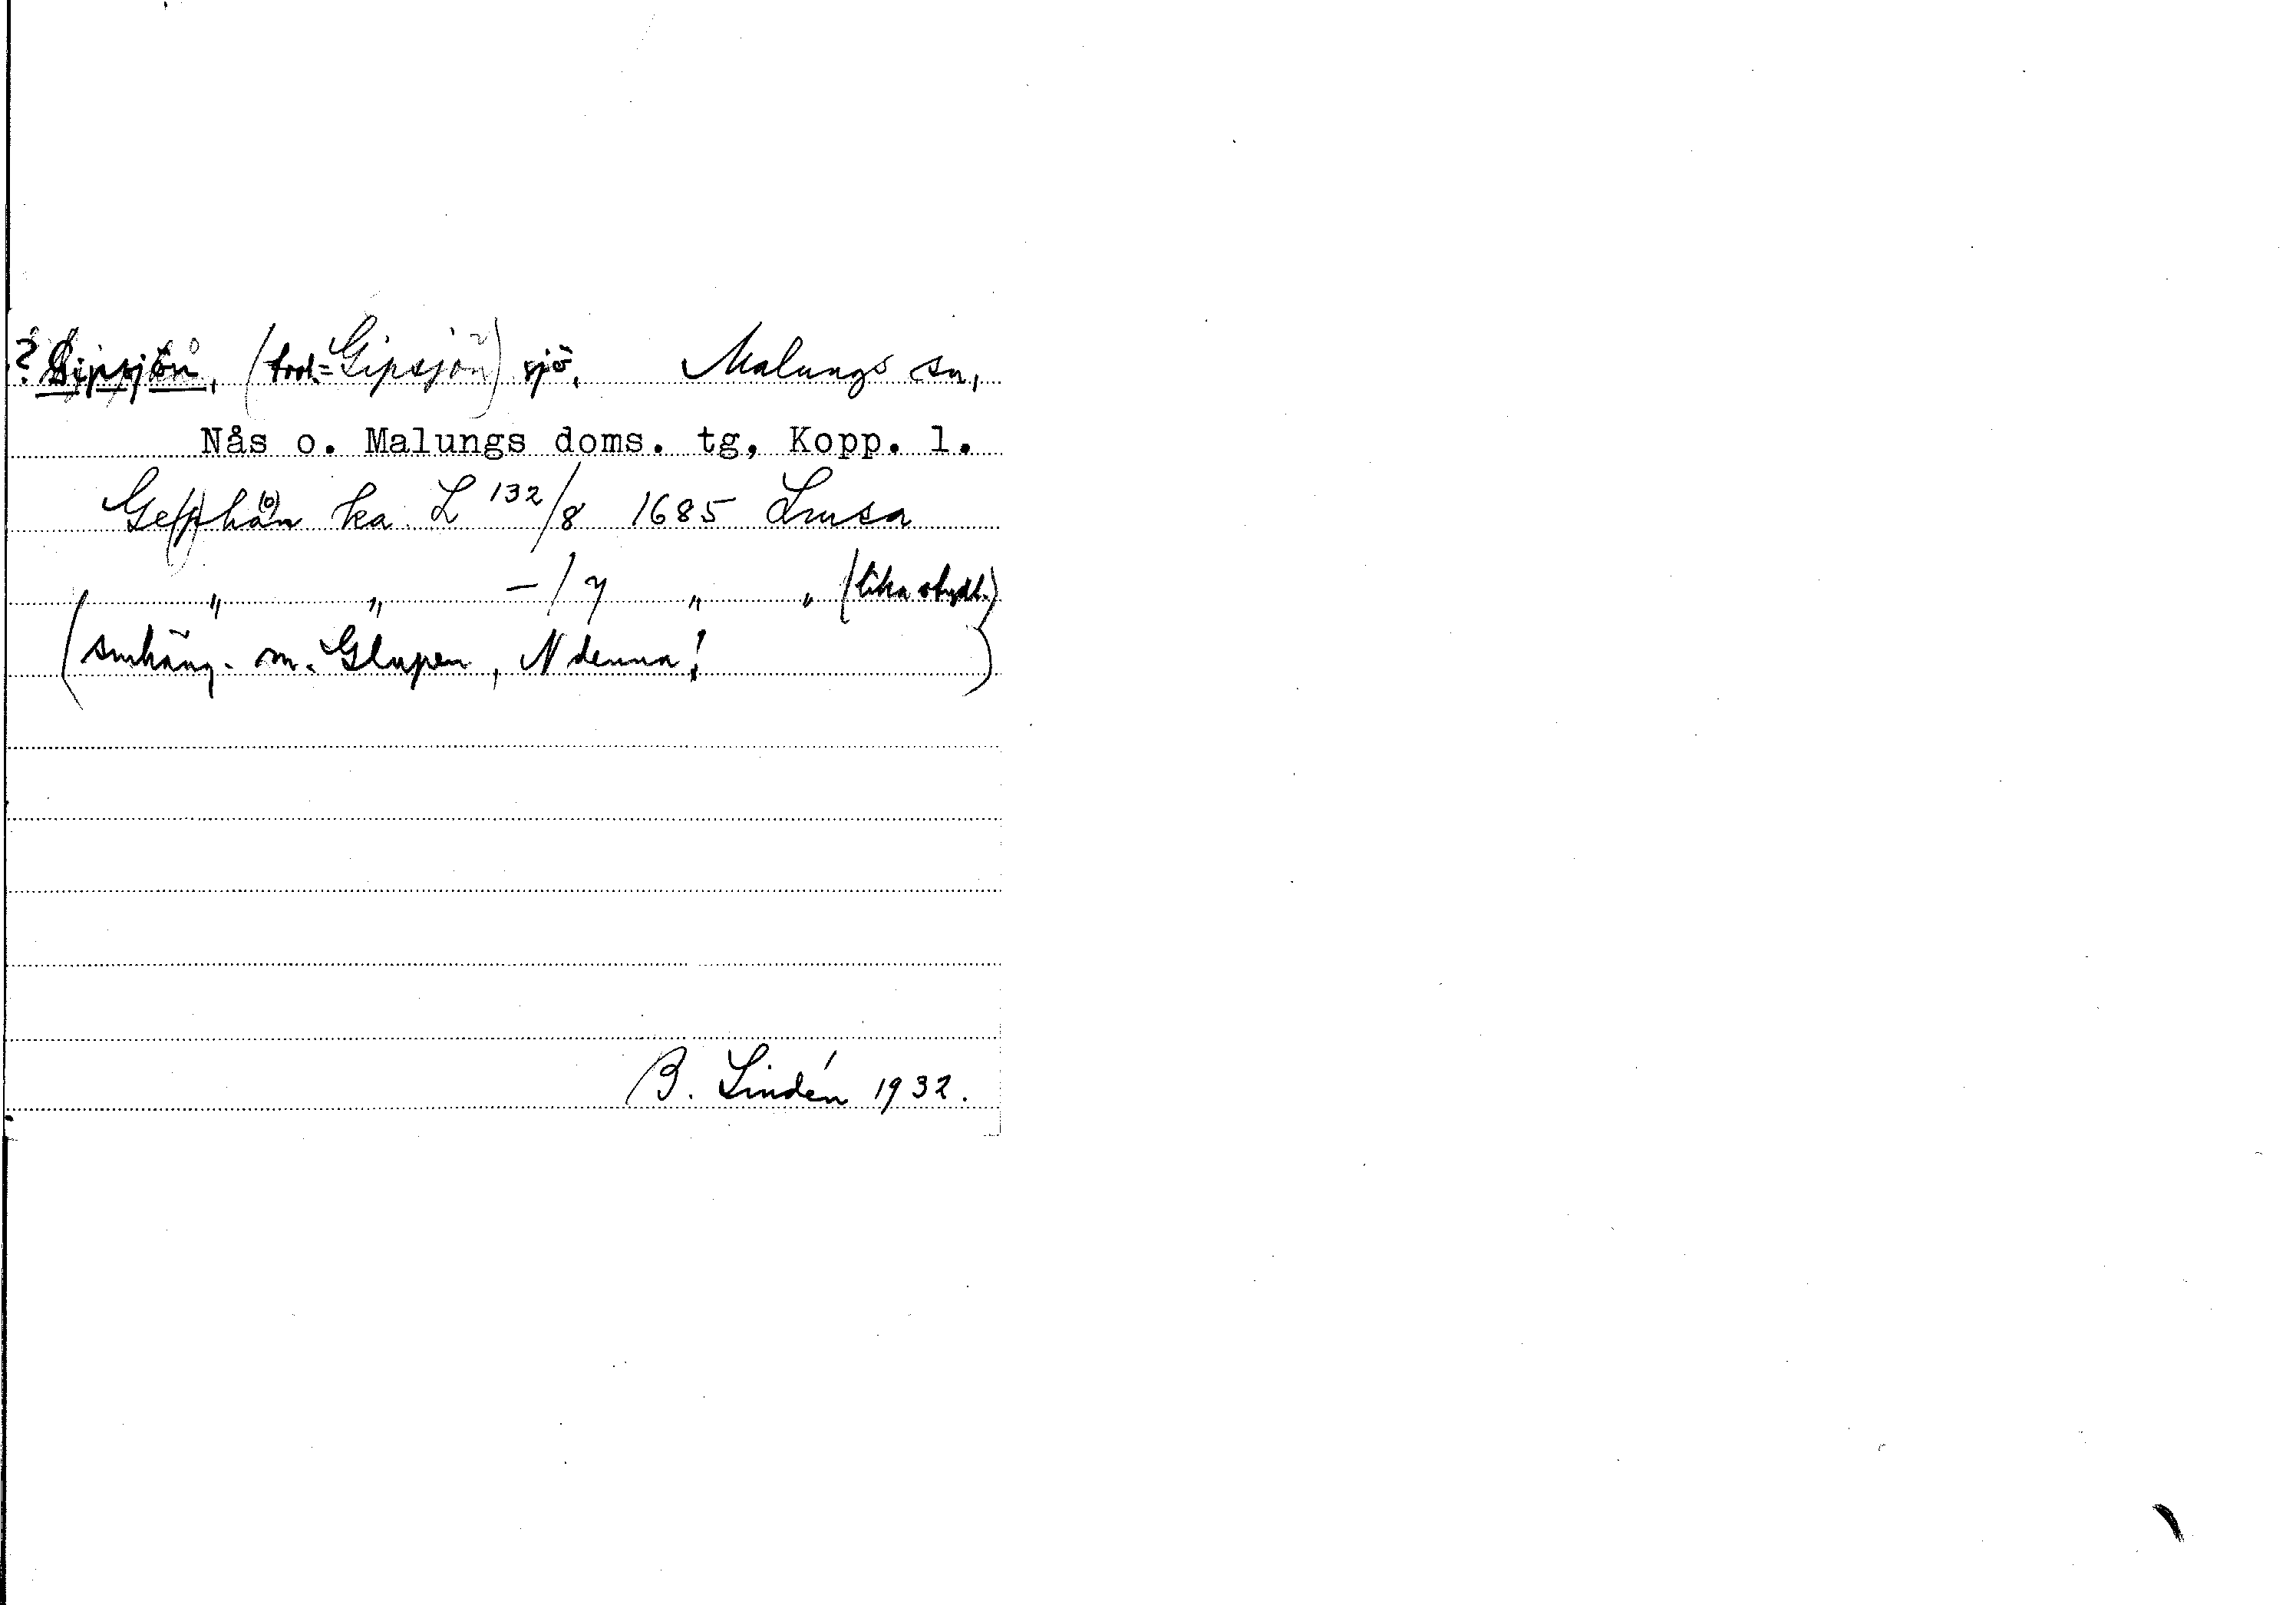 ? Gipsjön, (trol.= Gipsjön) sjö, Malungs sn,
Nås o. Malungs doms. tg, Kopp. l.
Ge(p)hån ka L 132/8 1685 Lmsa
" " –/7 " " (lika otydl.)
(smhäng. m. Glupen, N denna! )
B. Lindén 1932.